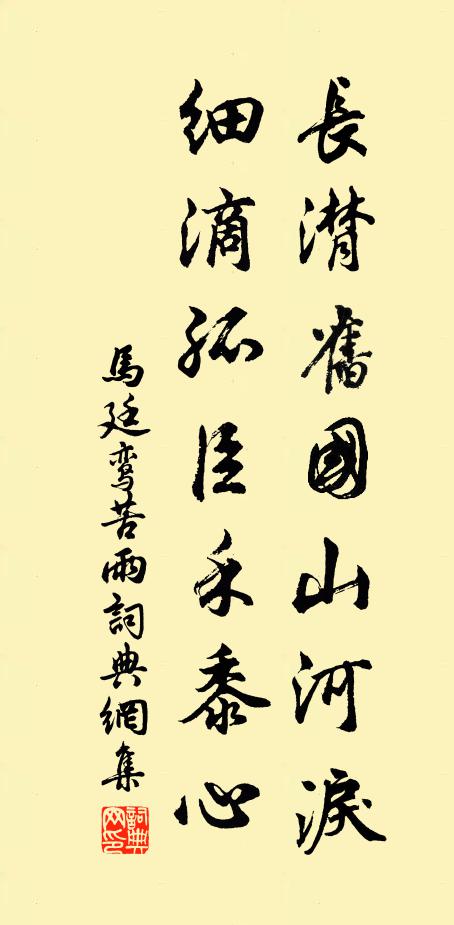 長潸舊國山河淚
細滴孤臣禾黍心
馬廷鸾苦雨詞典網集
詞典网印